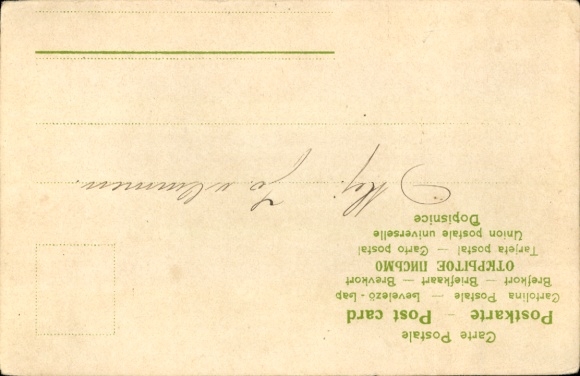 Carte Postale
Postkarte – Post card
Cartolina Postale – Levelező-Lap
Brefkort – Briefkaart – Brevkort
ОТКРЫТОЕ ПИСЬМО
Tarjeta postal – Carto postal
Union postale universelle
Dopisnice
Mej.